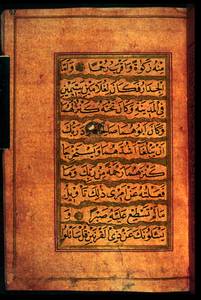 منه زكوة واقرب رحما واما
الجدار فكان لغلامين يتيمين
في المدينة وكان تحته كنز لهما
وكان ابوهما صالحا فاراد ربك
ان يبلغا اشدهما ويستخرجا
كنزهما رحمة من ربك وما
فعلته عن امري ذلك تاويل
ما لم تسطع عليه صبرا و
يسئلونك عن ذي القرنين قل ساتلوا